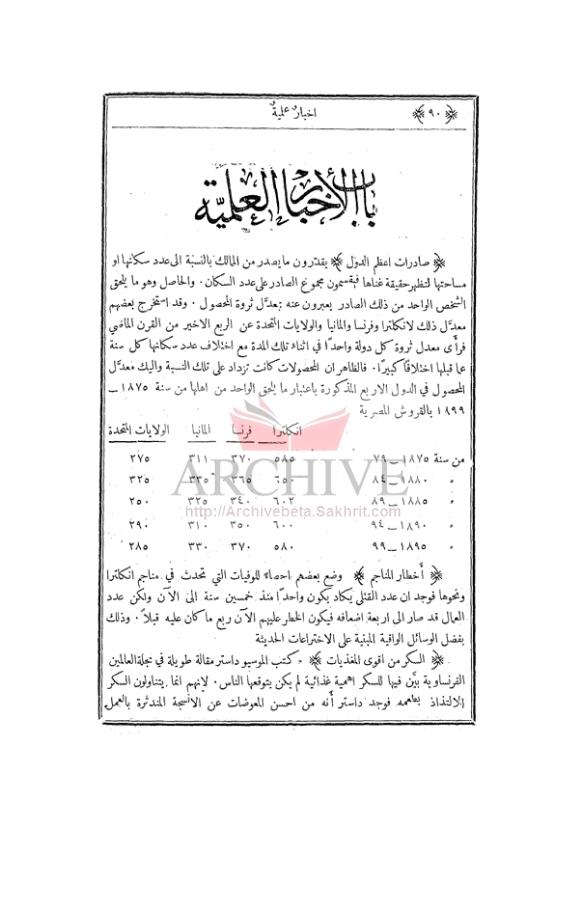 ﴿ ٩٠ ﴾ اخبارٌ علميةٌ
باب الأخبار العلمية
﴿ صادرات اعظم الدول ﴾ يقدّرون ما يصدر من الممالك بالنسبة الى عدد سكانها او
مساحتها لتظهر حقيقة غناها فيقسمون مجموع الصادر على عدد السكان٠ والحاصل وهو ما يلحق
الشخص الواحد من ذلك الصادر يعبرون عنه بمعدّل ثروة المحصول ٠ وقد استخرج بعضهم
معدّل ذلك لانكلترا وفرنسا والمانيا والولايات المتحدة عن الربع الاخير من القرن الماضي
فرأى معدل ثروة كل دولة واحدًا في اثناء تلك المدة مع اختلاف عدد سكانها كل سنة
عما قبلها اختلافًا كبيرًا٠ فالظاهر ان المحصولات كانت تزداد على تلك النسبة واليك معدّل
المحصول في الدول الاربع المذكورة باعتبار ما يلحق الواحد من اهلها من سنة ١٨٧٥ ــ
١٨٩٩ بالقروش المصرية
انكلترا فرنسا المانيا الولايات المتحدة
من سنة ١٨٧٥ ــ ٧٩ ٥٨٥ ٣٧٠ ٣١١ ٢٧٥
" ١٨٨٠ ــ ٨٤ ٦٥٠ ٣٦٥ ٣٣٥ ٣٢٥
" ١٨٨٥ ــ ٨٩ ٦٠٢ ٣٤٠ ٣٢٥ ٢٥٠
" ١٨٩٠ ــ ٩٤ ٦٠٠ ٣٥٠ ٣١٠ ٢٩٠
" ١٨٩٥ ــ ٩٩ ٥٨٠ ٣٧٠ ٣٣٠ ٢٨٥
﴿ أخطار المناجم ﴾ وضع بعضهم احصاءً للوفيات التي تحدث في مناجم انكلترا
ونحوها فوجد ان عدد القتلى يكاد يكون واحدًا منذ خمسين سنة الى الآن ولكن عدد
العمال قد صار الى اربعة اضعافه فيكون الخطر عليهم الآن ربع ما كان عليه قبلاً ٠ وذلك
بفضل الوسائل الواقية المبنية على الاختراعات الحديثة
﴿ السكر من اقوى المغذيات ﴾ ـ كتب الموسيو داستر مقالة طويلة في مجلة العالمين
الفرنساوية بيَّن فيها للسكر اهمية غذائية لم يكن يتوقعها الناس ٠ لانهم انما يتناولون السكر
للالتذاذ بطعمه فوجد داستر أنه من احسن المعوضات عن الانسجة المندثرة بالعمل
ARCHIVE
http://Archivebeta.Sakhrit.com